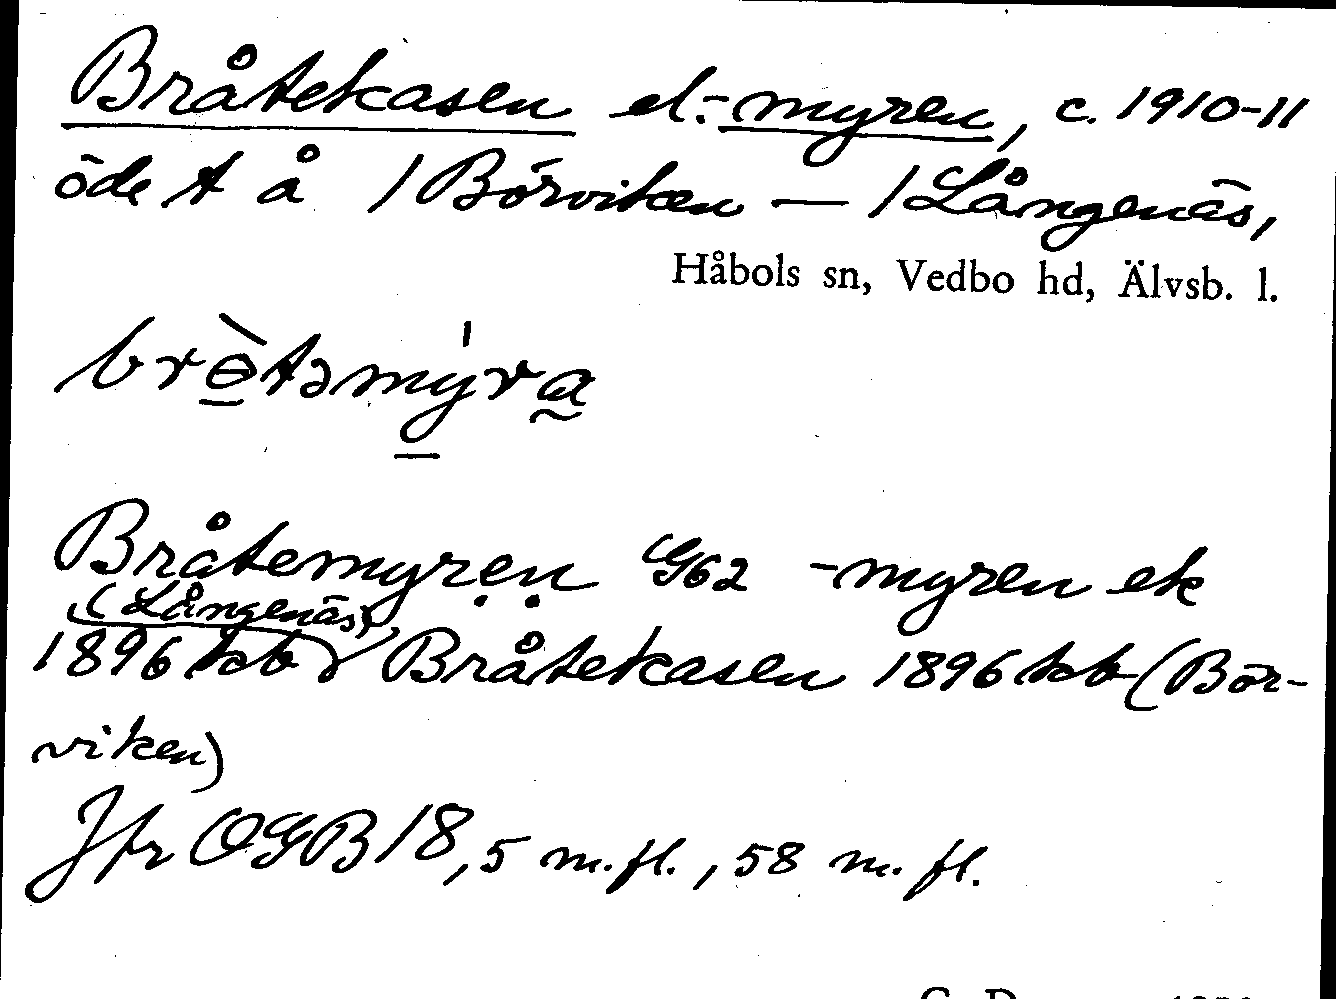 Bråtekasen el. -myren, c. 1910-11
öde t å 1 Börviken — 1 Långenäs,
Håbols sn, Vedbo hd, Älvsb. l.
brɵ̀təmýra
Bråtemyren G62 -myren ek
(Långenäs),
1896 kb Bråtekasen 1896 kb (Bör-
viken)
Jfr OGB 18, 5 m.fl., 58 m.fl.